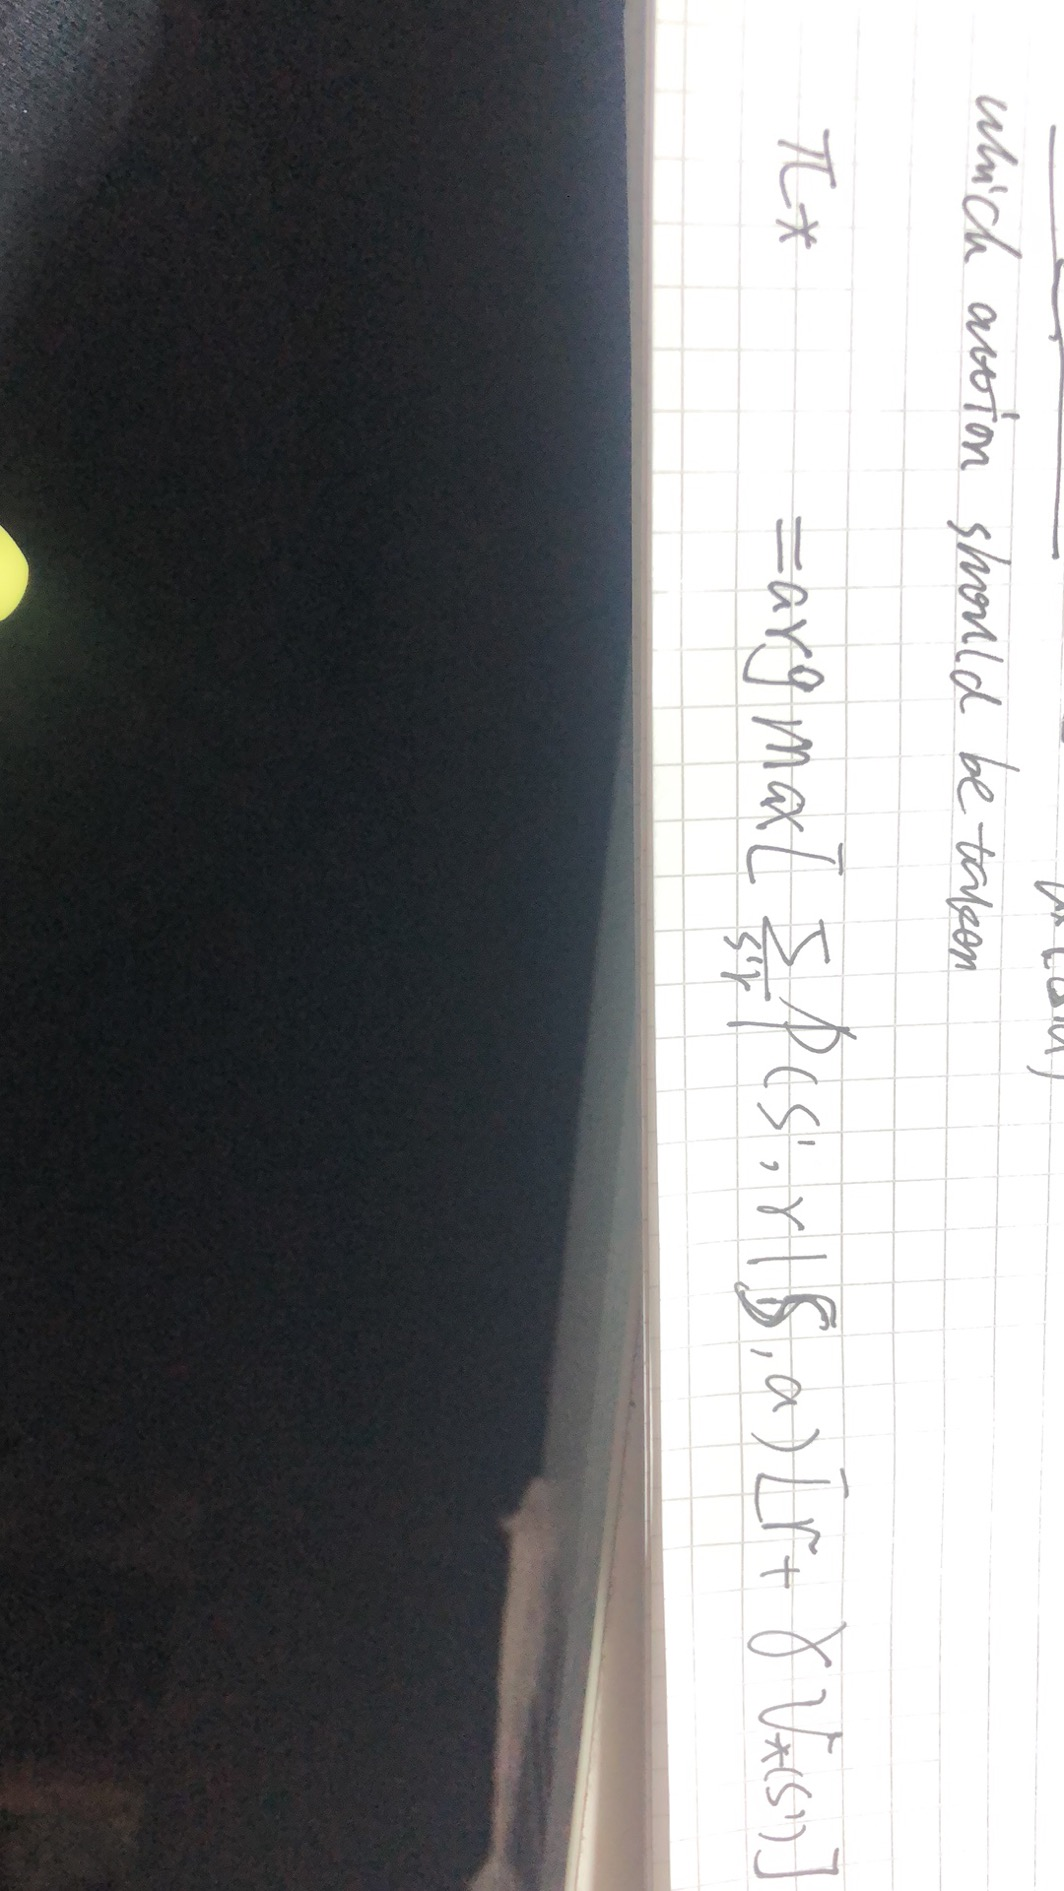 which action should be taken
π* =arg max[ Σ_{s'r} p(s',r|s,a)[r+ γ V*(s')]